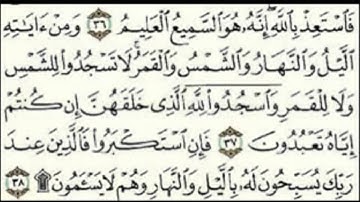 فَٱسْتَعِذْ بِٱللَّهِ ۖ إِنَّهُۥ هُوَ ٱلسَّمِيعُ ٱلْعَلِيمُ ٣٦ وَمِنْ ءَايَٰتِهِ
ٱلَّيْلُ وَٱلنَّهَارُ وَٱلشَّمْسُ وَٱلْقَمَرُ ۚ لَا تَسْجُدُوا۟ لِلشَّمْسِ
وَلَا لِلْقَمَرِ وَٱسْجُدُوا۟ لِلَّهِ ٱلَّذِى خَلَقَهُنَّ إِن كُنتُمْ
إِيَّاهُ تَعْبُدُونَ ٣٧ فَإِنِ ٱسْتَكْبَرُوا۟ فَٱلَّذِينَ عِندَ
رَبِّكَ يُسَبِّحُونَ لَهُۥ بِٱلَّيْلِ وَٱلنَّهَارِ وَهُمْ لَا يَسْـَٔمُونَ ۩ ٣٨